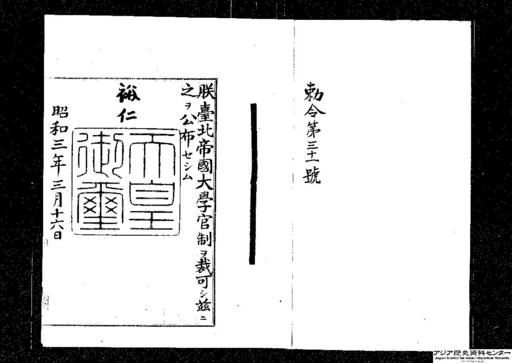 勅令第三十一號
朕臺北帝國大學官制ヲ裁可シ茲ニ
之ヲ公布セシム
裕仁
天皇
御璽
昭和三年三月十六日
アジア歴史資料センター
Japan Center for Asian Historical Records